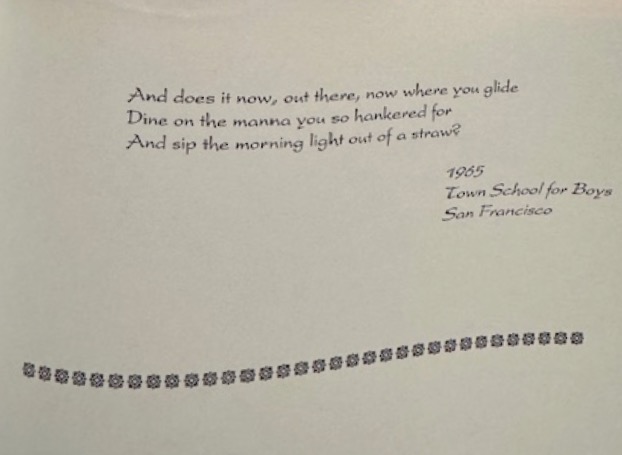 And does it now, out there, now where you glide
Dine on the manna you so hankered for
And sip the morning light out of a straw?
1965
Town School for Boys
San Francisco